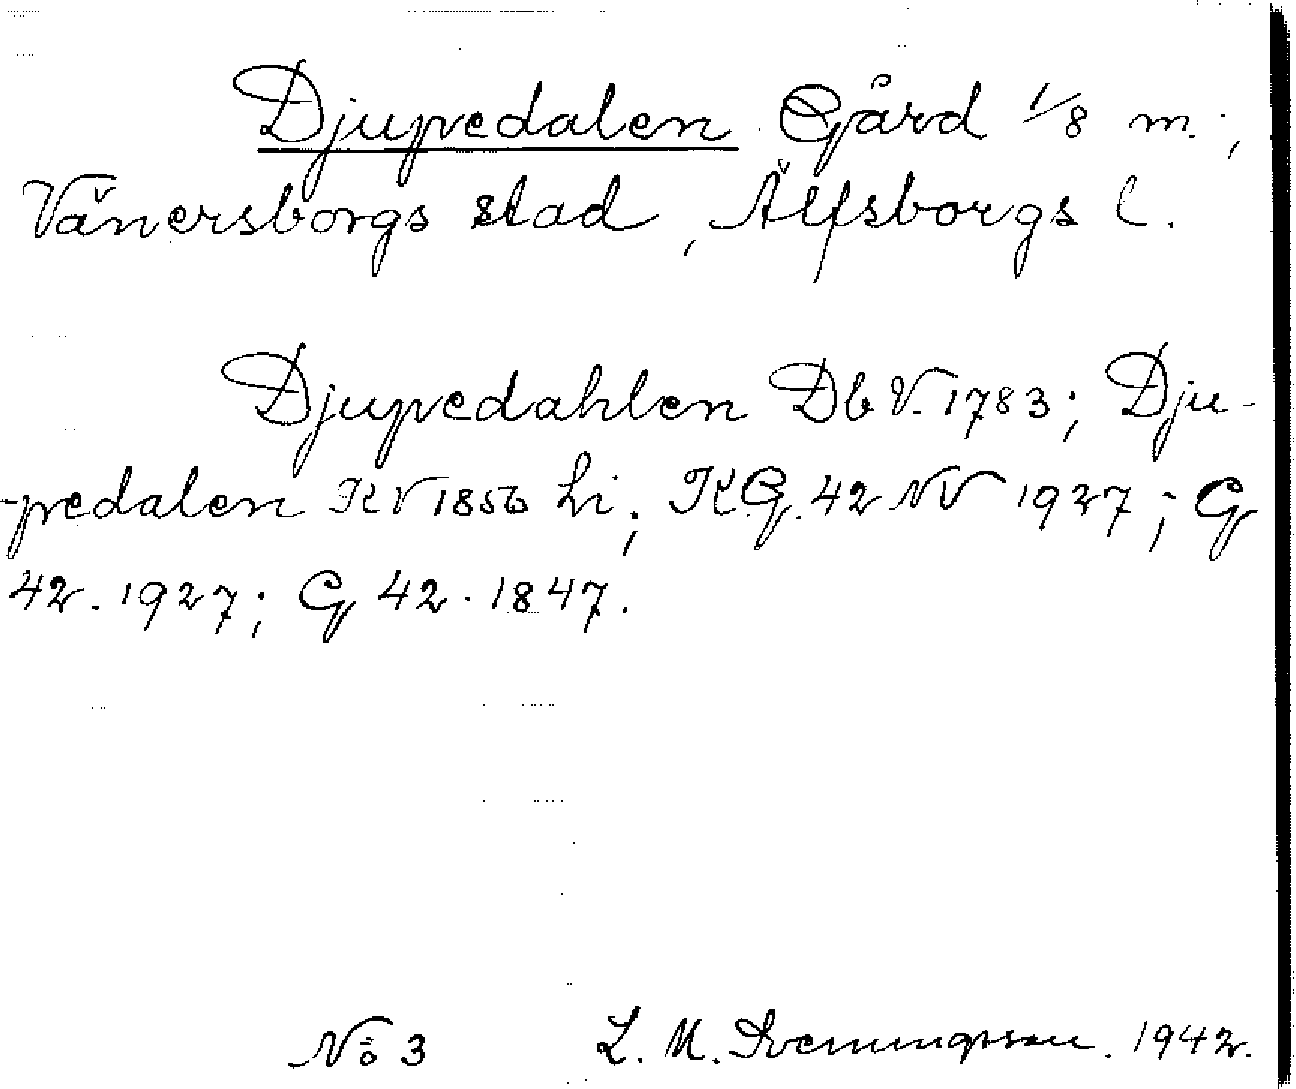 Djupedalen Gård 1/8 m.,
Vänersborgs stad, Älfsborgs l.
Djupedahlen Db V. 1783; Dju-
-pedalen KV 1856 hi; KG. 42 NV 1927; G
42. 1927; G 42. 1847.
No 3 L. M. Svenungsson. 1942.